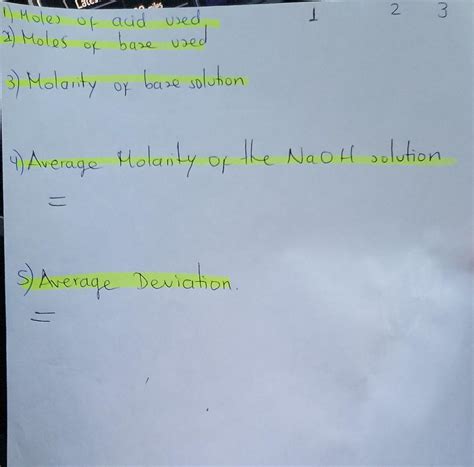 1) Moles of acid used 1 2 3
2) Moles of base used
3) Molarity of base solution
4) Average Molarity of the NaOH solution
=
5) Average Deviation.
=